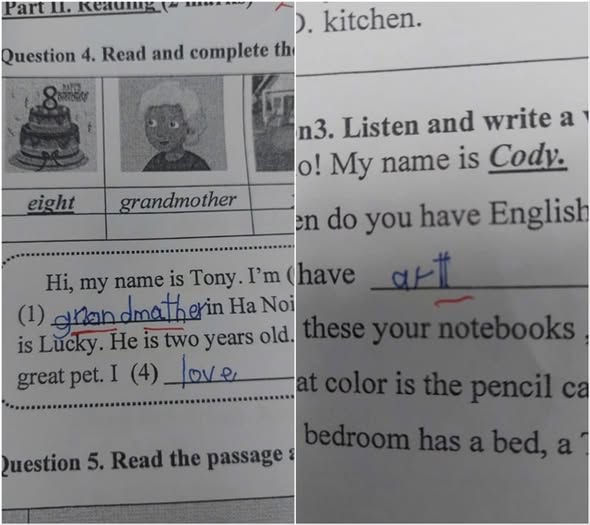 Part II. Reading (2
Question 4. Read and complete th
8
HAPPY BIRTHDAY
eight
grandmother
Hi, my name is Tony. I'm (
(1) grandmather in Ha Noi
is Lucky. He is two years old.
great pet. I (4) love
Question 5. Read the passage a
D. kitchen.
n3. Listen and write a
o! My name is Cody.
en do you have English
have art
these your notebooks ,
at color is the pencil ca
bedroom has a bed, a T